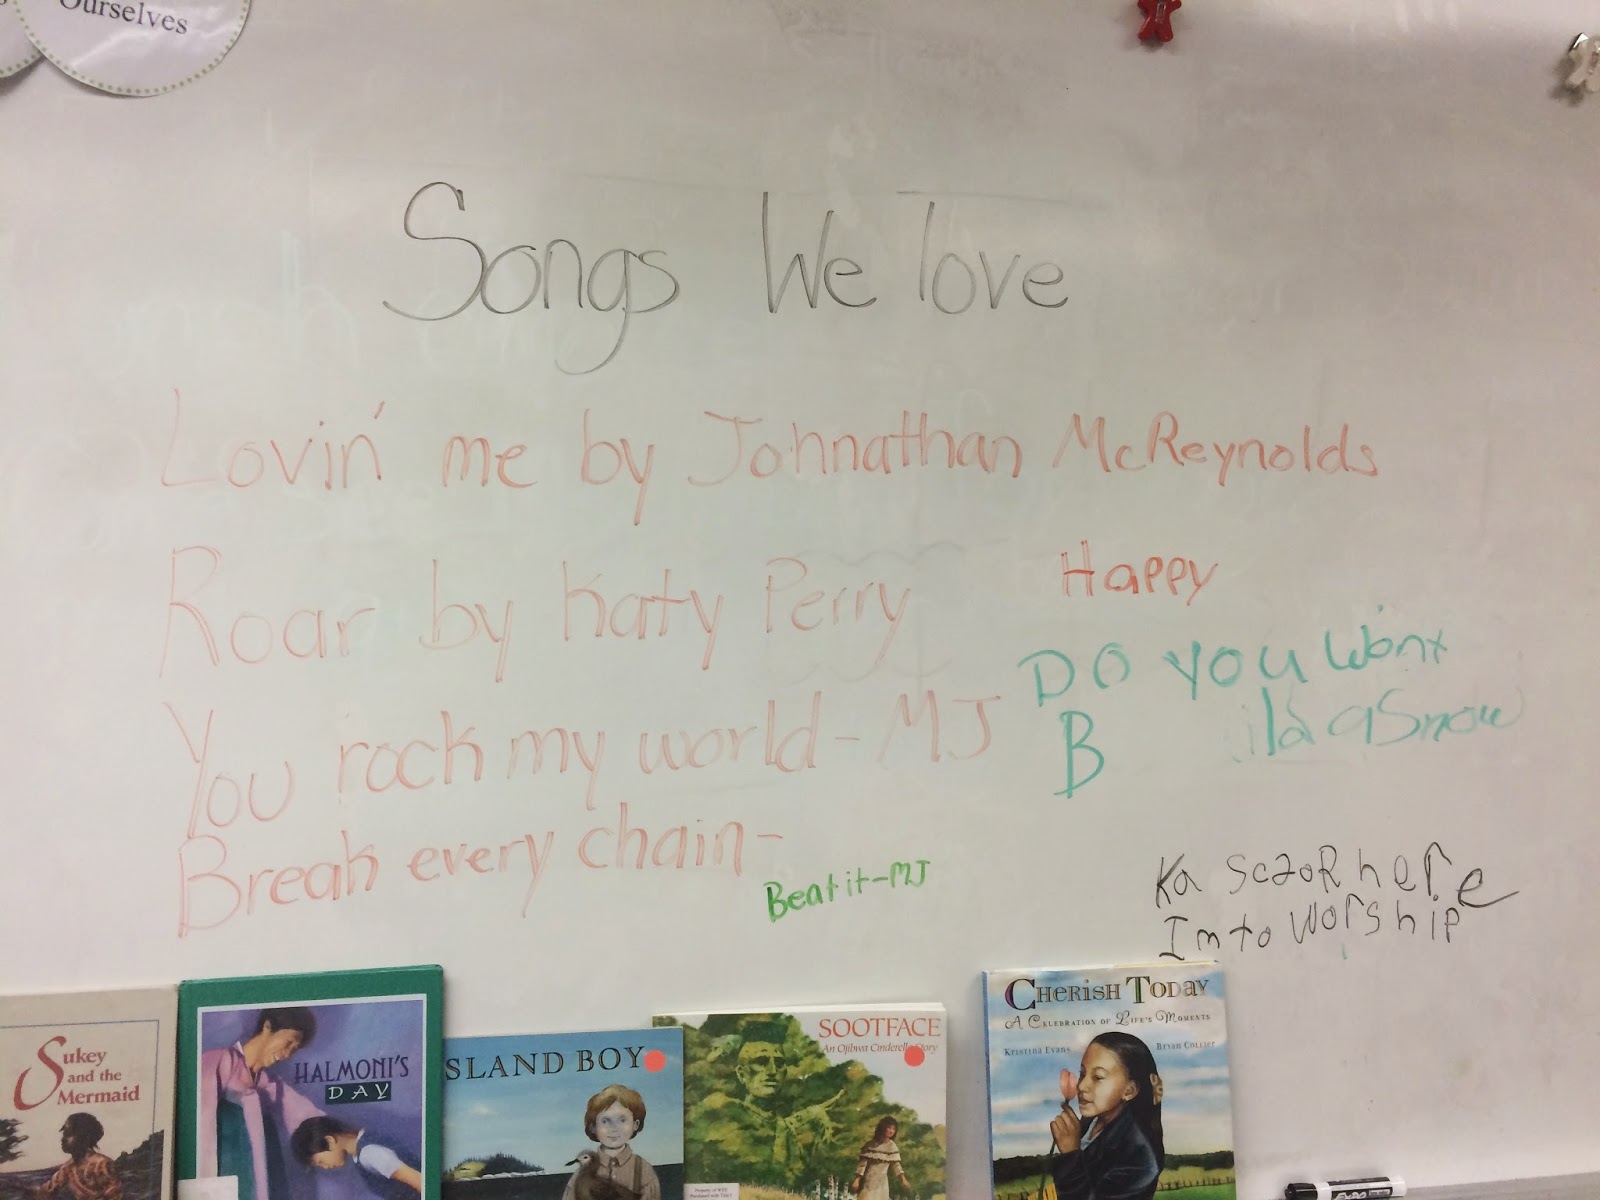 Ourselves
Songs We love
Lovin' me by Johnathan McReynolds
Roar by Katy Perry
Happy
Do you Want
B ild a Snow
You rock my world - MJ
Break every chain -
Beat it - MJ
Ka sczor here
Im to worship
Sukey
and the
Mermaid
HALMONI'S
DAY
SLAND BOY
SOOTFACE
An Ojibwa Cinderella Story
CHERISH TODAY
A CELEBRATION OF LIFE'S MOMENTS
Kristina Evans Bryan Collier
EXPO